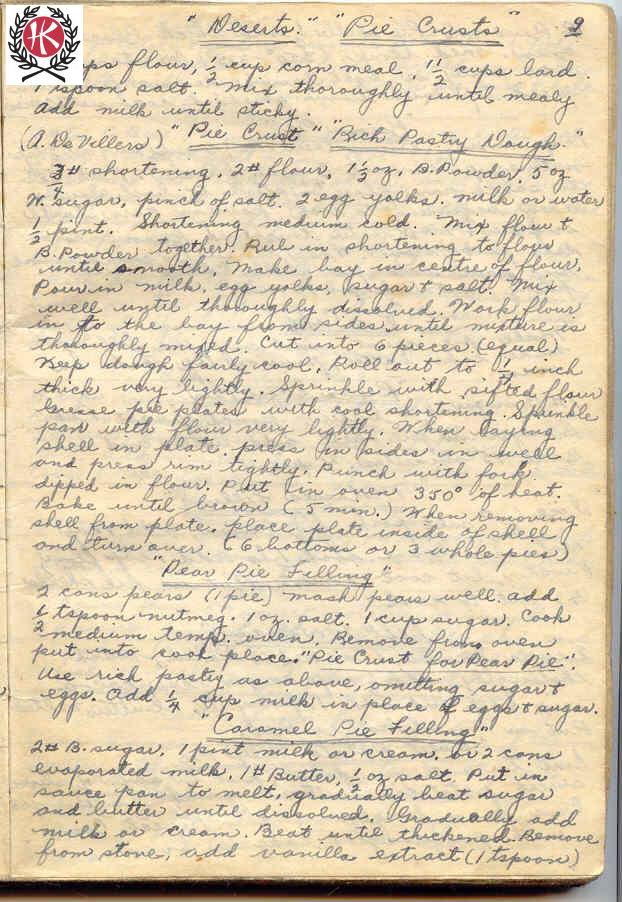 "Deserts." "Pie Crusts" 9
HK
flour, 1/2 cup corn meal, 1 1/2 cups lard.
1 tspoon salt. Mix thoroughly until mealy
add milk until sticky.
(A. DeVillers) "Pie Crust" "Rich Pastry Dough."
3/4 # shortening, 2# flour, 1 1/2 oz, B. Powder, 5 oz
W. sugar, pinch of salt. 2 egg yolks. milk or water
1/2 pint. Shortening medium cold. Mix flour +
B. Powder together. Rub in shortening to flour
until smooth. Make bay in centre of flour.
Pour in milk, egg yolks, sugar + salt. Mix
well until thoroughly dissolved. Work flour
in to the bay from sides until mixture is
thoroughly mixed. Cut into 6 pieces (equal)
Keep dough fairly cool. Roll out to 1/4 inch
thick very lightly. Sprinkle with sifted flour
Grease pie plates with cool shortening. Sprinkle
pan with flour very lightly. When laying
shell in plate press in sides in well
and press rim tightly. Punch with fork
dipped in flour. Put in oven 350° of heat.
Bake until brown (5 min.) When removing
shell from plate. place plate inside of shell
and turn over. (6 bottoms or 3 whole pies)
"Pear Pie Filling"
2 cans pears (1 pie) mash pears well. add
1/2 tspoon nutmeg. 1 oz. salt. 1 cup sugar. Cook
medium temp. oven. Remove from oven
put into cool place. "Pie Crust for Pear Pie".
Use rich pastry as above, omitting sugar +
eggs. Add 1/4 cup milk in place of eggs + sugar.
"Caramel Pie Filling"
2# B. sugar, 1 pint milk or cream. or 2 cans
evaporated milk, 1# Butter, 1/2 oz salt. Put in
sauce pan to melt, gradually beat sugar
and butter until dissolved. Gradually add
milk or cream. Beat until thickened. Remove
from stove, add vanilla extract (1 tspoon)